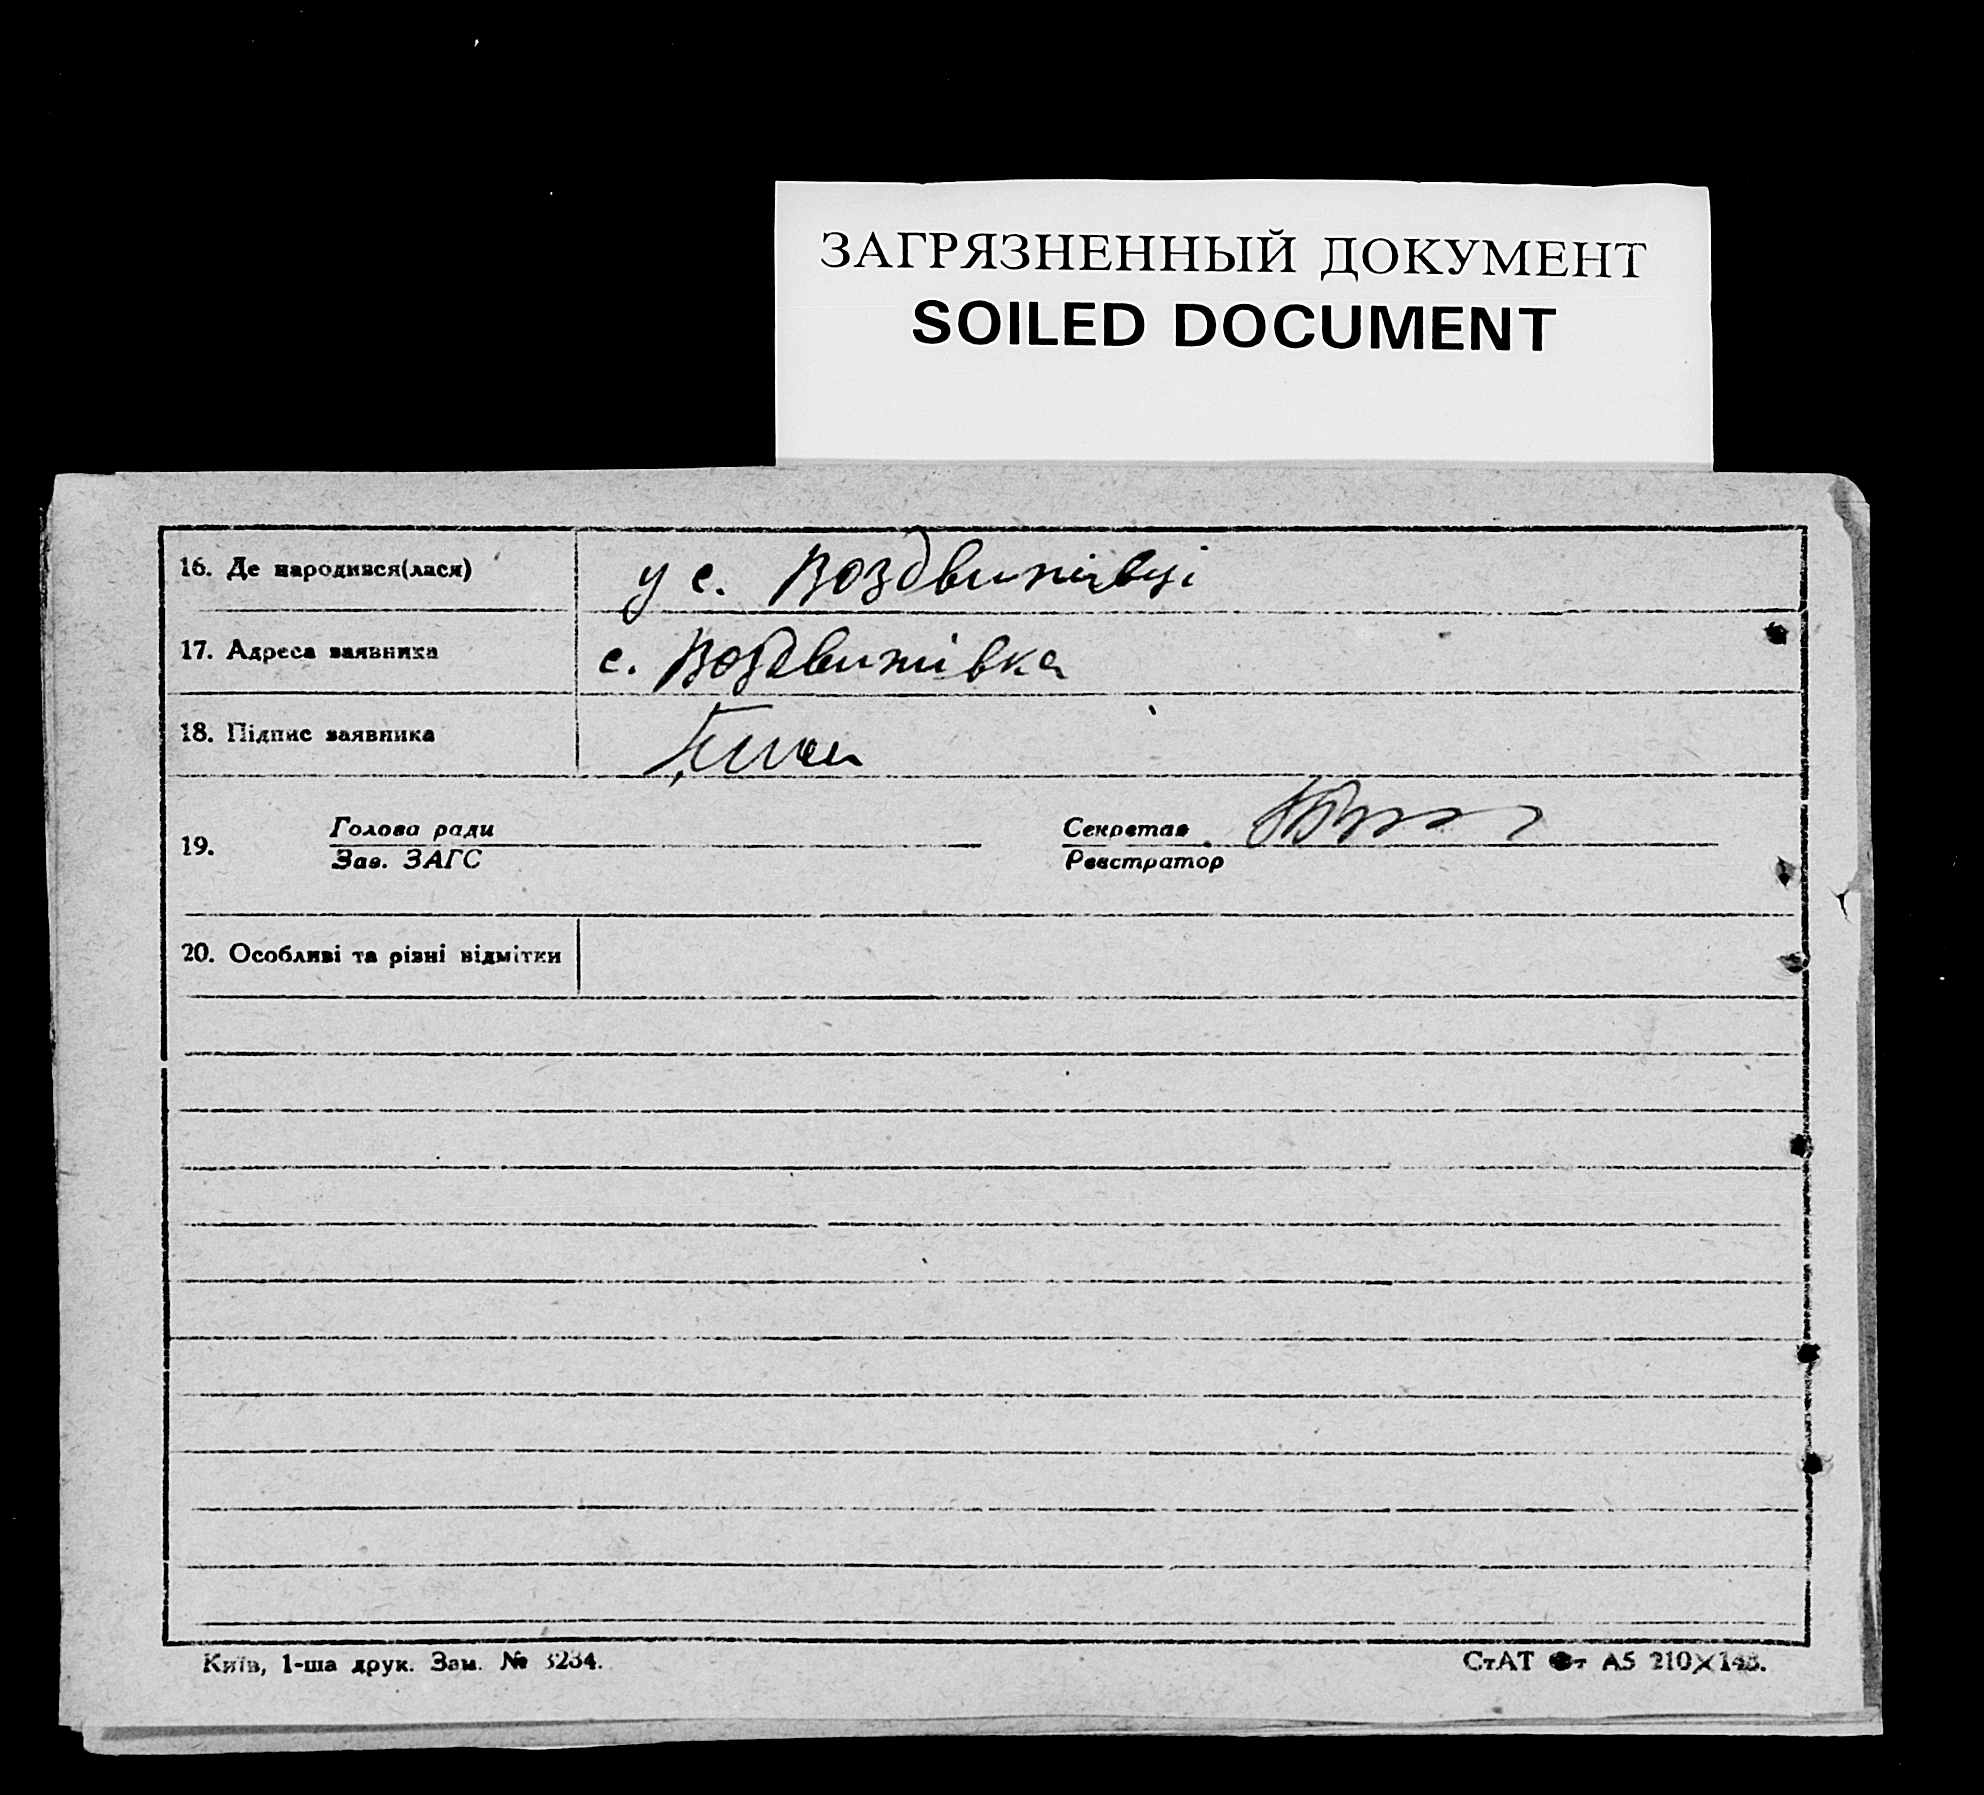 ЗАГРЯЗНЕННЫЙ ДОКУМЕНТ
SOILED DOCUMENT
16. Де народився(лася) у с. Воздвижівці
17. Адреса заявника с. Воздвижівка
18. Підпис заявника
19. Голова ради Секретар
Зав. ЗАГС Реєстратор
20. Особливі та різні відмітки
Київ, 1-ша друк. Зам. № 3234.
СтАТ А5 210×148.